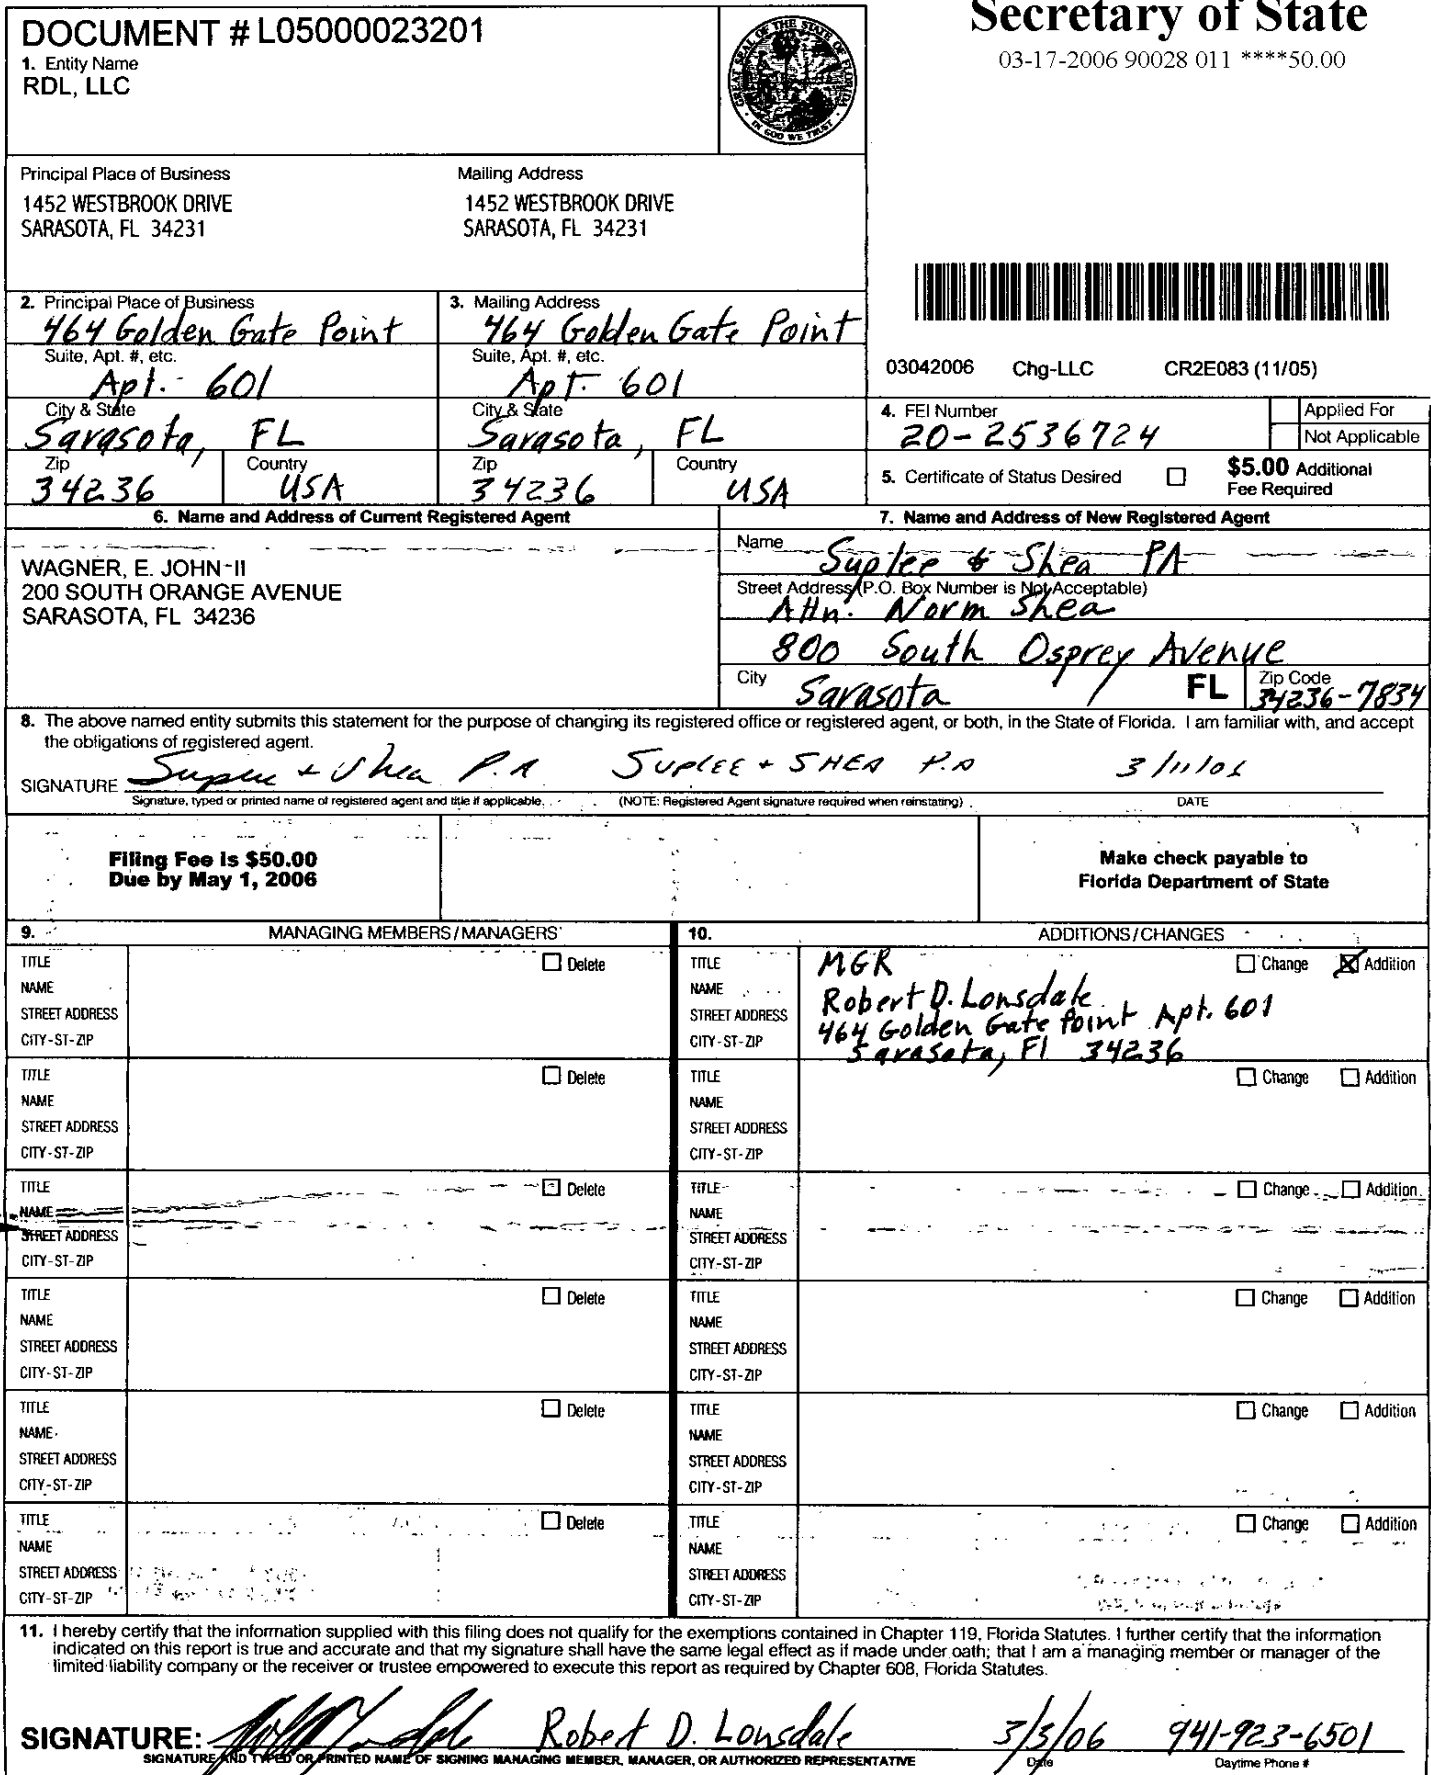 Secretary of State
03-17-2006 90028 011 ****50.00
DOCUMENT # L05000023201
1. Entity Name
RDL, LLC
GREAT SEAL OF THE STATE OF FLORIDA
IN GOD WE TRUST
Principal Place of Business
1452 WESTBROOK DRIVE
SARASOTA, FL 34231
Mailing Address
1452 WESTBROOK DRIVE
SARASOTA, FL 34231
2. Principal Place of Business
464 Golden Gate Point
Suite, Apt. #, etc.
Apt. 601
City & State
Sarasota, FL
Zip
34236
Country
USA
3. Mailing Address
464 Golden Gate Point
Suite, Apt. #, etc.
Apt. 601
City & State
Sarasota, FL
Zip
34236
Country
USA
03042006 Chg-LLC CR2E083 (11/05)
4. FEI Number
20-2536724
Applied For
Not Applicable
5. Certificate of Status Desired
$5.00 Additional
Fee Required
6. Name and Address of Current Registered Agent
WAGNER, E. JOHN II
200 SOUTH ORANGE AVENUE
SARASOTA, FL 34236
7. Name and Address of New Registered Agent
Name
Suplee & Shea PA
Street Address (P.O. Box Number is Not Acceptable)
Attn: Norm Shea
800 South Osprey Avenue
City
Sarasota
FL
Zip Code
34236-7834
8. The above named entity submits this statement for the purpose of changing its registered office or registered agent, or both, in the State of Florida. I am familiar with, and accept
the obligations of registered agent.
SIGNATURE Suplee + Shea P.A SUPLEE + SHEA P.A 3/11/06
Signature, typed or printed name of registered agent and title if applicable. (NOTE: Registered Agent signature required when reinstating) DATE
Filing Fee is $50.00
Due by May 1, 2006
Make check payable to
Florida Department of State
9. MANAGING MEMBERS/MANAGERS
TITLE
Delete
NAME
STREET ADDRESS
CITY-ST-ZIP
TITLE
Delete
NAME
STREET ADDRESS
CITY-ST-ZIP
TITLE
Delete
NAME
STREET ADDRESS
CITY-ST-ZIP
TITLE
Delete
NAME
STREET ADDRESS
CITY-ST-ZIP
TITLE
Delete
NAME
STREET ADDRESS
CITY-ST-ZIP
TITLE
Delete
NAME
STREET ADDRESS
CITY-ST-ZIP
10. ADDITIONS/CHANGES
TITLE MGR Change Addition
NAME Robert D. Lonsdale
STREET ADDRESS 464 Golden Gate Point Apt. 601
CITY-ST-ZIP Sarasota, Fl 34236
TITLE Change Addition
NAME
STREET ADDRESS
CITY-ST-ZIP
TITLE Change Addition
NAME
STREET ADDRESS
CITY-ST-ZIP
TITLE Change Addition
NAME
STREET ADDRESS
CITY-ST-ZIP
TITLE Change Addition
NAME
STREET ADDRESS
CITY-ST-ZIP
TITLE Change Addition
NAME
STREET ADDRESS
CITY-ST-ZIP
11. I hereby certify that the information supplied with this filing does not qualify for the exemptions contained in Chapter 119, Florida Statutes. I further certify that the information
indicated on this report is true and accurate and that my signature shall have the same legal effect as if made under oath; that I am a managing member or manager of the
limited liability company or the receiver or trustee empowered to execute this report as required by Chapter 608, Florida Statutes.
SIGNATURE: Robert D. Lonsdale 3/3/06 941-923-6501
SIGNATURE AND TYPED OR PRINTED NAME OF SIGNING MANAGING MEMBER, MANAGER, OR AUTHORIZED REPRESENTATIVE Date Daytime Phone #